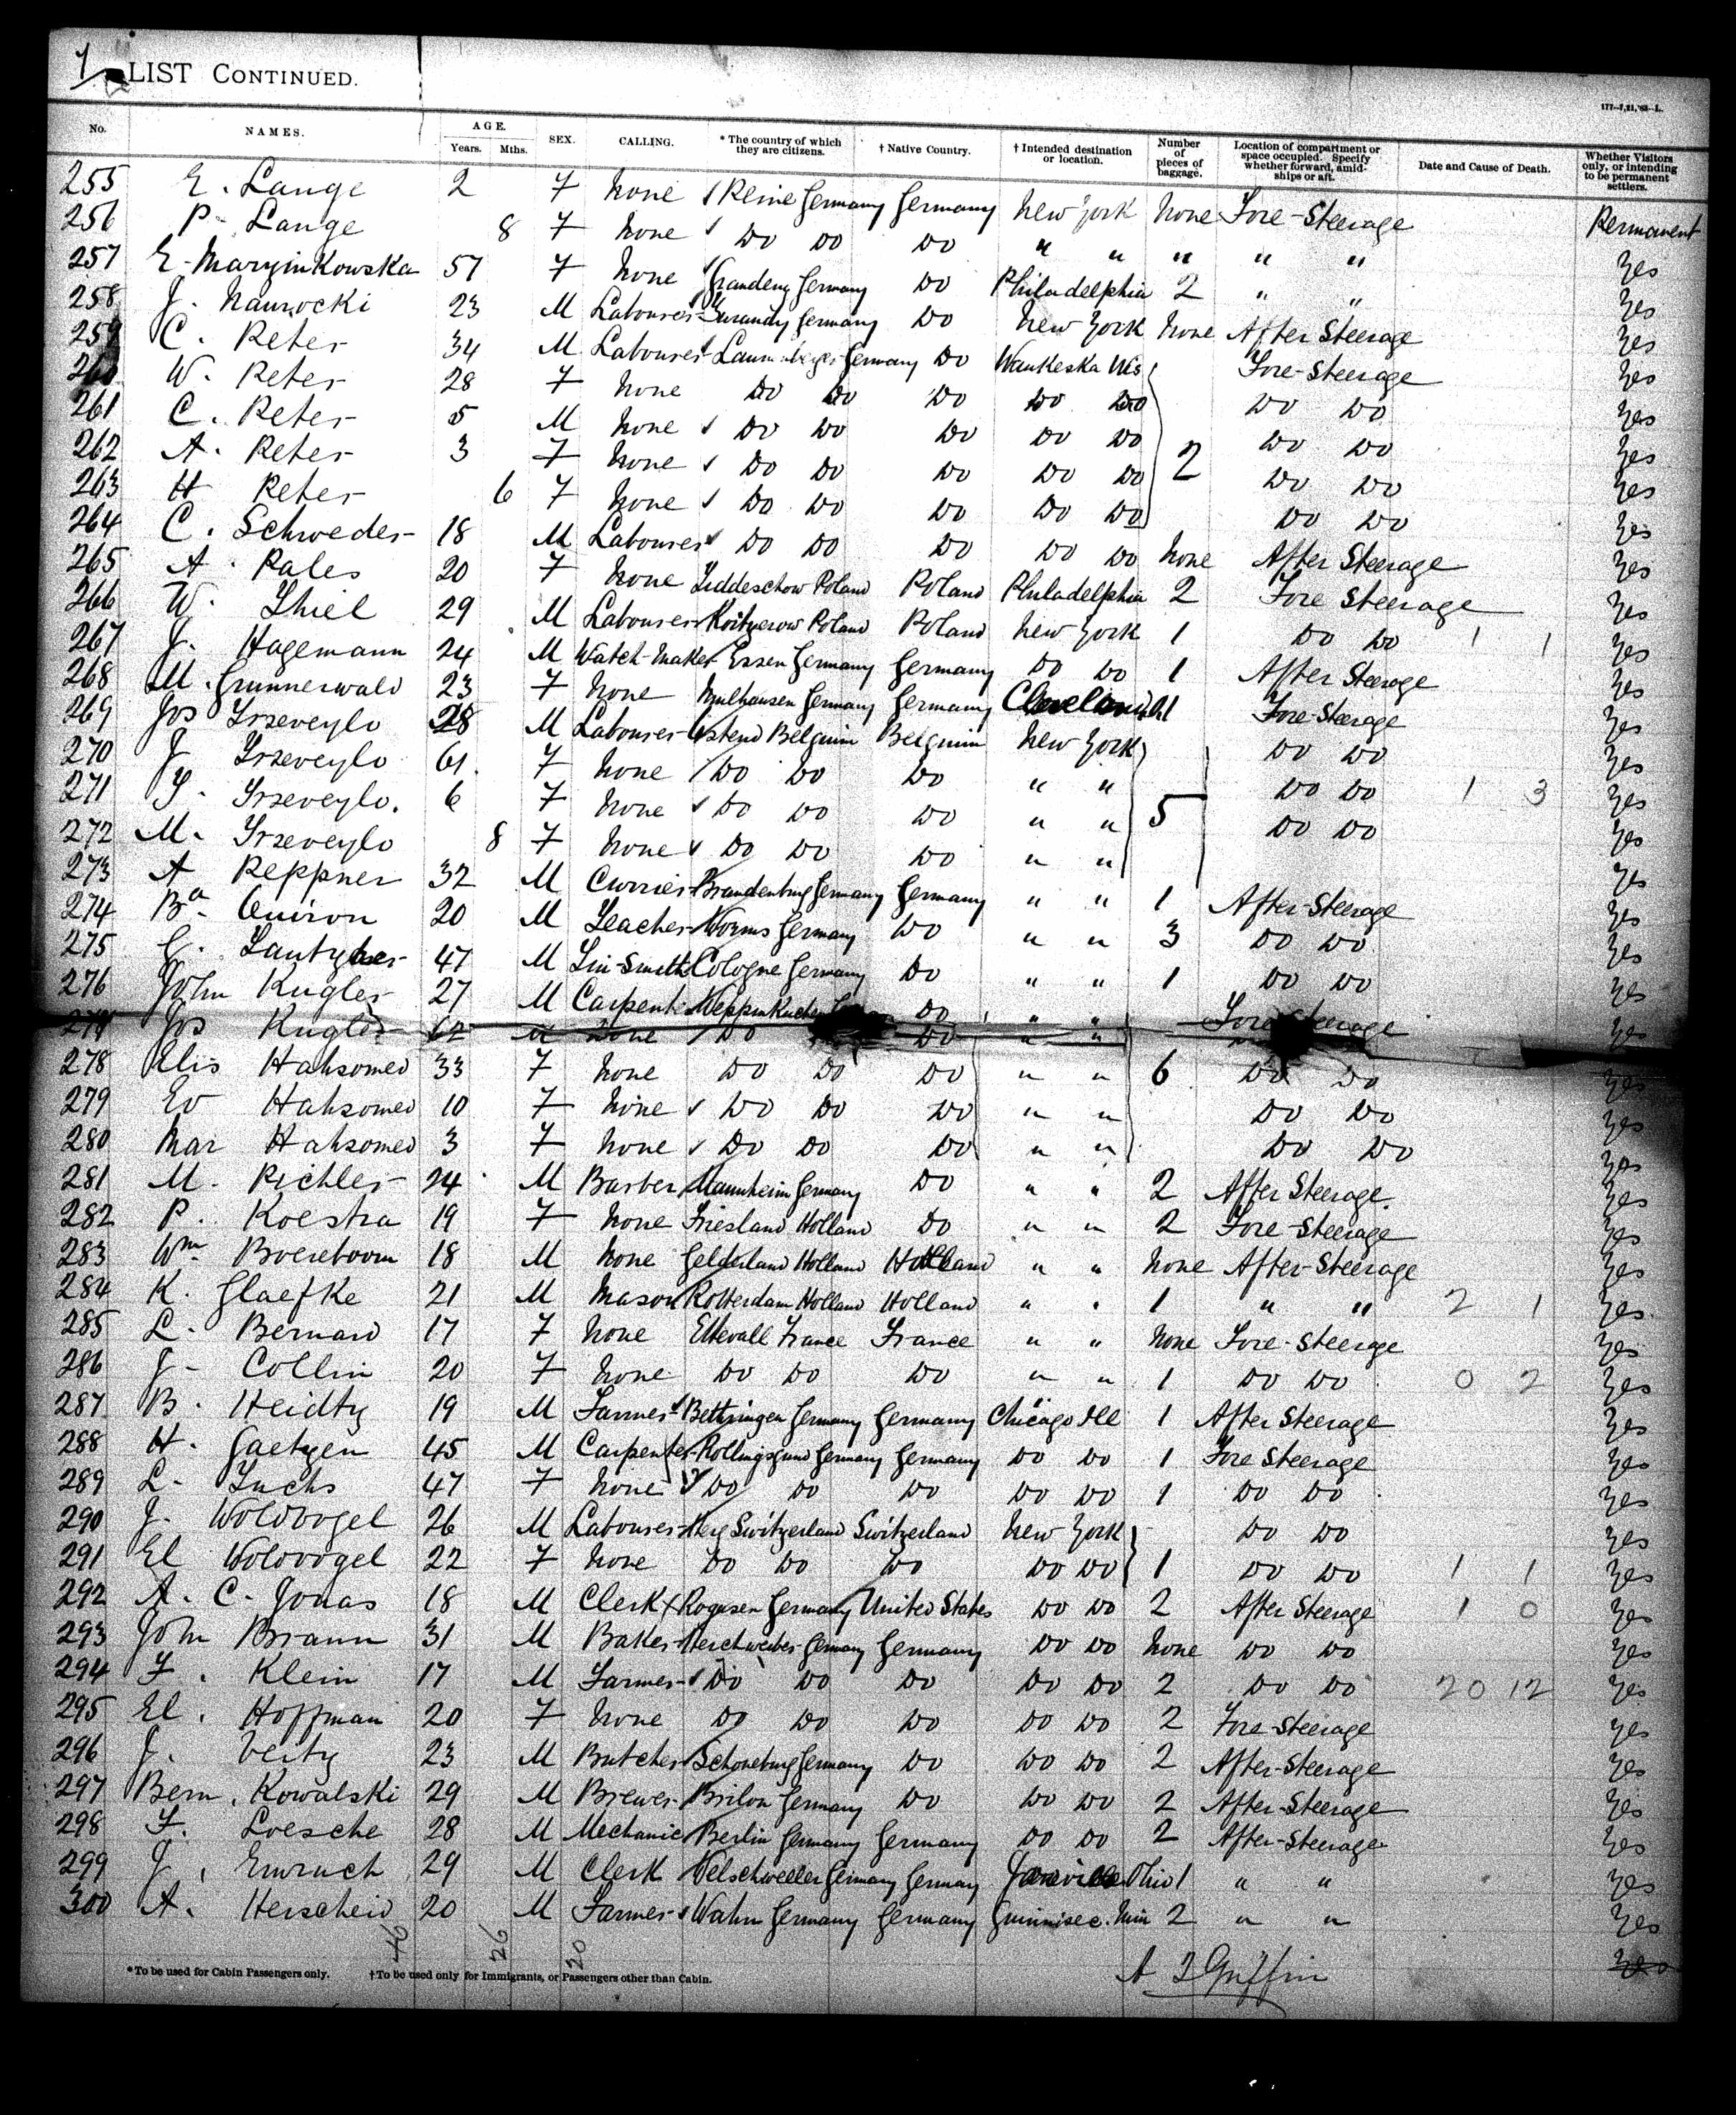 7
LIST CONTINUED.
177—7,21,'83—L.
No. NAMES. AGE. Years. Mths. SEX. CALLING. * The country of which they are citizens. † Native Country. † Intended destination or location. Number of pieces of baggage. Location of compartment or space occupied. Specify whether forward, amid-ships or aft. Date and Cause of Death. Whether Visitors only, or intending to be permanent settlers.
255 E. Lange 2 F None Germany Germany New York None Fore-Steerage Permanent
256 P. Lange 8 F None Do Do Do " " " " " Yes
257 E. Maryinkowska 57 F None Germany Do Philadelphia 2 " " Yes
258 J. Naurocki 23 M Labourer Germany Do New York None After Steerage Yes
259 C. Peter 34 M Labourer Germany Do Waukeska Wis Fore-Steerage Yes
260 W. Peter 28 F None Do Do Do Do Do Do Do Yes
261 C. Peter 5 M None Do Do Do Do Do Do Do Yes
262 A. Peter 3 F None Do Do Do Do Do 2 Do Do Yes
263 H Peter 6 F None Do Do Do Do Do Do Do Yes
264 C. Schroeder 18 M Labourer Do Do Do Do Do None After Steerage Yes
265 A. Pales 20 F None Liddeschow Poland Poland Philadelphia 2 Fore Steerage Yes
266 W. Thiel 29 M Labourer Poland Poland New York 1 Do Do 1 1 Yes
267 J. Hagemann 24 M Watch-Maker Essen Germany Germany Do Do 1 After Steerage Yes
268 M. Grunnerwald 23 F None Mulhausen Germany Germany Cleveland 1 Fore-Steerage Yes
269 Jos Yrzeveylo 28 M Labourer Ostend Belguim Belguim New York Do Do Yes
270 J Yrzeveylo 61 F None Do Do Do " " Do Do 1 3 Yes
271 Y. Yrzeveylo. 6 F None Do Do Do " " 5 Do Do Yes
272 M. Yrzeveylo 8 F None Do Do Do " " Yes
273 A Peppner 32 M Currier Brandenburg Germany Germany " " 1 After-Steerage Yes
274 Ba. Quiron 20 M Teacher Worms Germany Do " " 3 Do Do Yes
275 47 M Tin-Smith Cologne Germany Do " " 1 Do Do Yes
276 John Kugler 27 M Carpenter Do " " Fore Steerage Yes
277 Jos Kugler 62 M None Do Do " " Yes
278 Elis Hahsomed 33 F None Do Do Do " " 6 Do Do Yes
279 Ev Hahsomed 10 F None Do Do Do " " Do Do Yes
280 Mar Hahsomed 3 F None Do Do Do " " Do Do Yes
281 M. Pichler 24 M Barber Mannheim Germany Do " " 2 After Steerage Yes
282 P. Koestra 19 F None Friesland Holland Do " " 2 Fore-Steerage Yes
283 Wm Boereboom 18 M None Gelderland Holland Holland " " None After-Steerage Yes
284 K. Glaefke 21 M Mason Rotterdam Holland Holland " " 1 " " 2 1 Yes
285 L. Bernard 17 F None Ettevall France France " " None Fore-Steerage Yes
286 J- Collin 20 F None Do Do Do " " 1 Do Do 0 2 Yes
287 B. Heidtz 19 M Farmer Bethringen Germany Germany Chicago Ill 1 After Steerage Yes
288 H. Gaetzen 45 M Carpenter Germany Germany Do Do 1 Fore Steerage Yes
289 L- Fuchs 47 F None Do Do Do Do Do 1 Do Do Yes
290 J. Woldvogel 26 M Labourer Switzerland Switzerland New York Do Do Yes
291 El Woldvogel 22 F None Do Do Do Do Do 1 Do Do 1 1 Yes
292 A. C. Jonas 18 M Clerk Rogasen Germany United States Do Do 2 After Steerage 1 0 Yes
293 John Braun 31 M Baker Germany Germany Do Do None Do Do Yes
294 F. Klein 17 M Farmer Do Do Do Do Do 2 Do Do 20 12 Yes
295 El. Hoffman 20 F None Do Do Do Do Do 2 Fore-Steerage Yes
296 J. Veity 23 M Butcher Schoneburg Germany Do Do Do 2 After-Steerage Yes
297 Bern. Kowalski 29 M Brewer Brilon Germany Do Do Do 2 After-Steerage Yes
298 F. Loesche 28 M Mechanic Berlin Germany Germany Do Do 2 After-Steerage Yes
299 J. Emruch 29 M Clerk Welschweeler Germany Germany Ohio 1 " " Yes
300 A. Herscheid 20 M Farmer Wahn Germany Germany 2 " " Yes
46 26 20
A Griffin
*To be used for Cabin Passengers only. †To be used only for Immigrants, or Passengers other than Cabin.